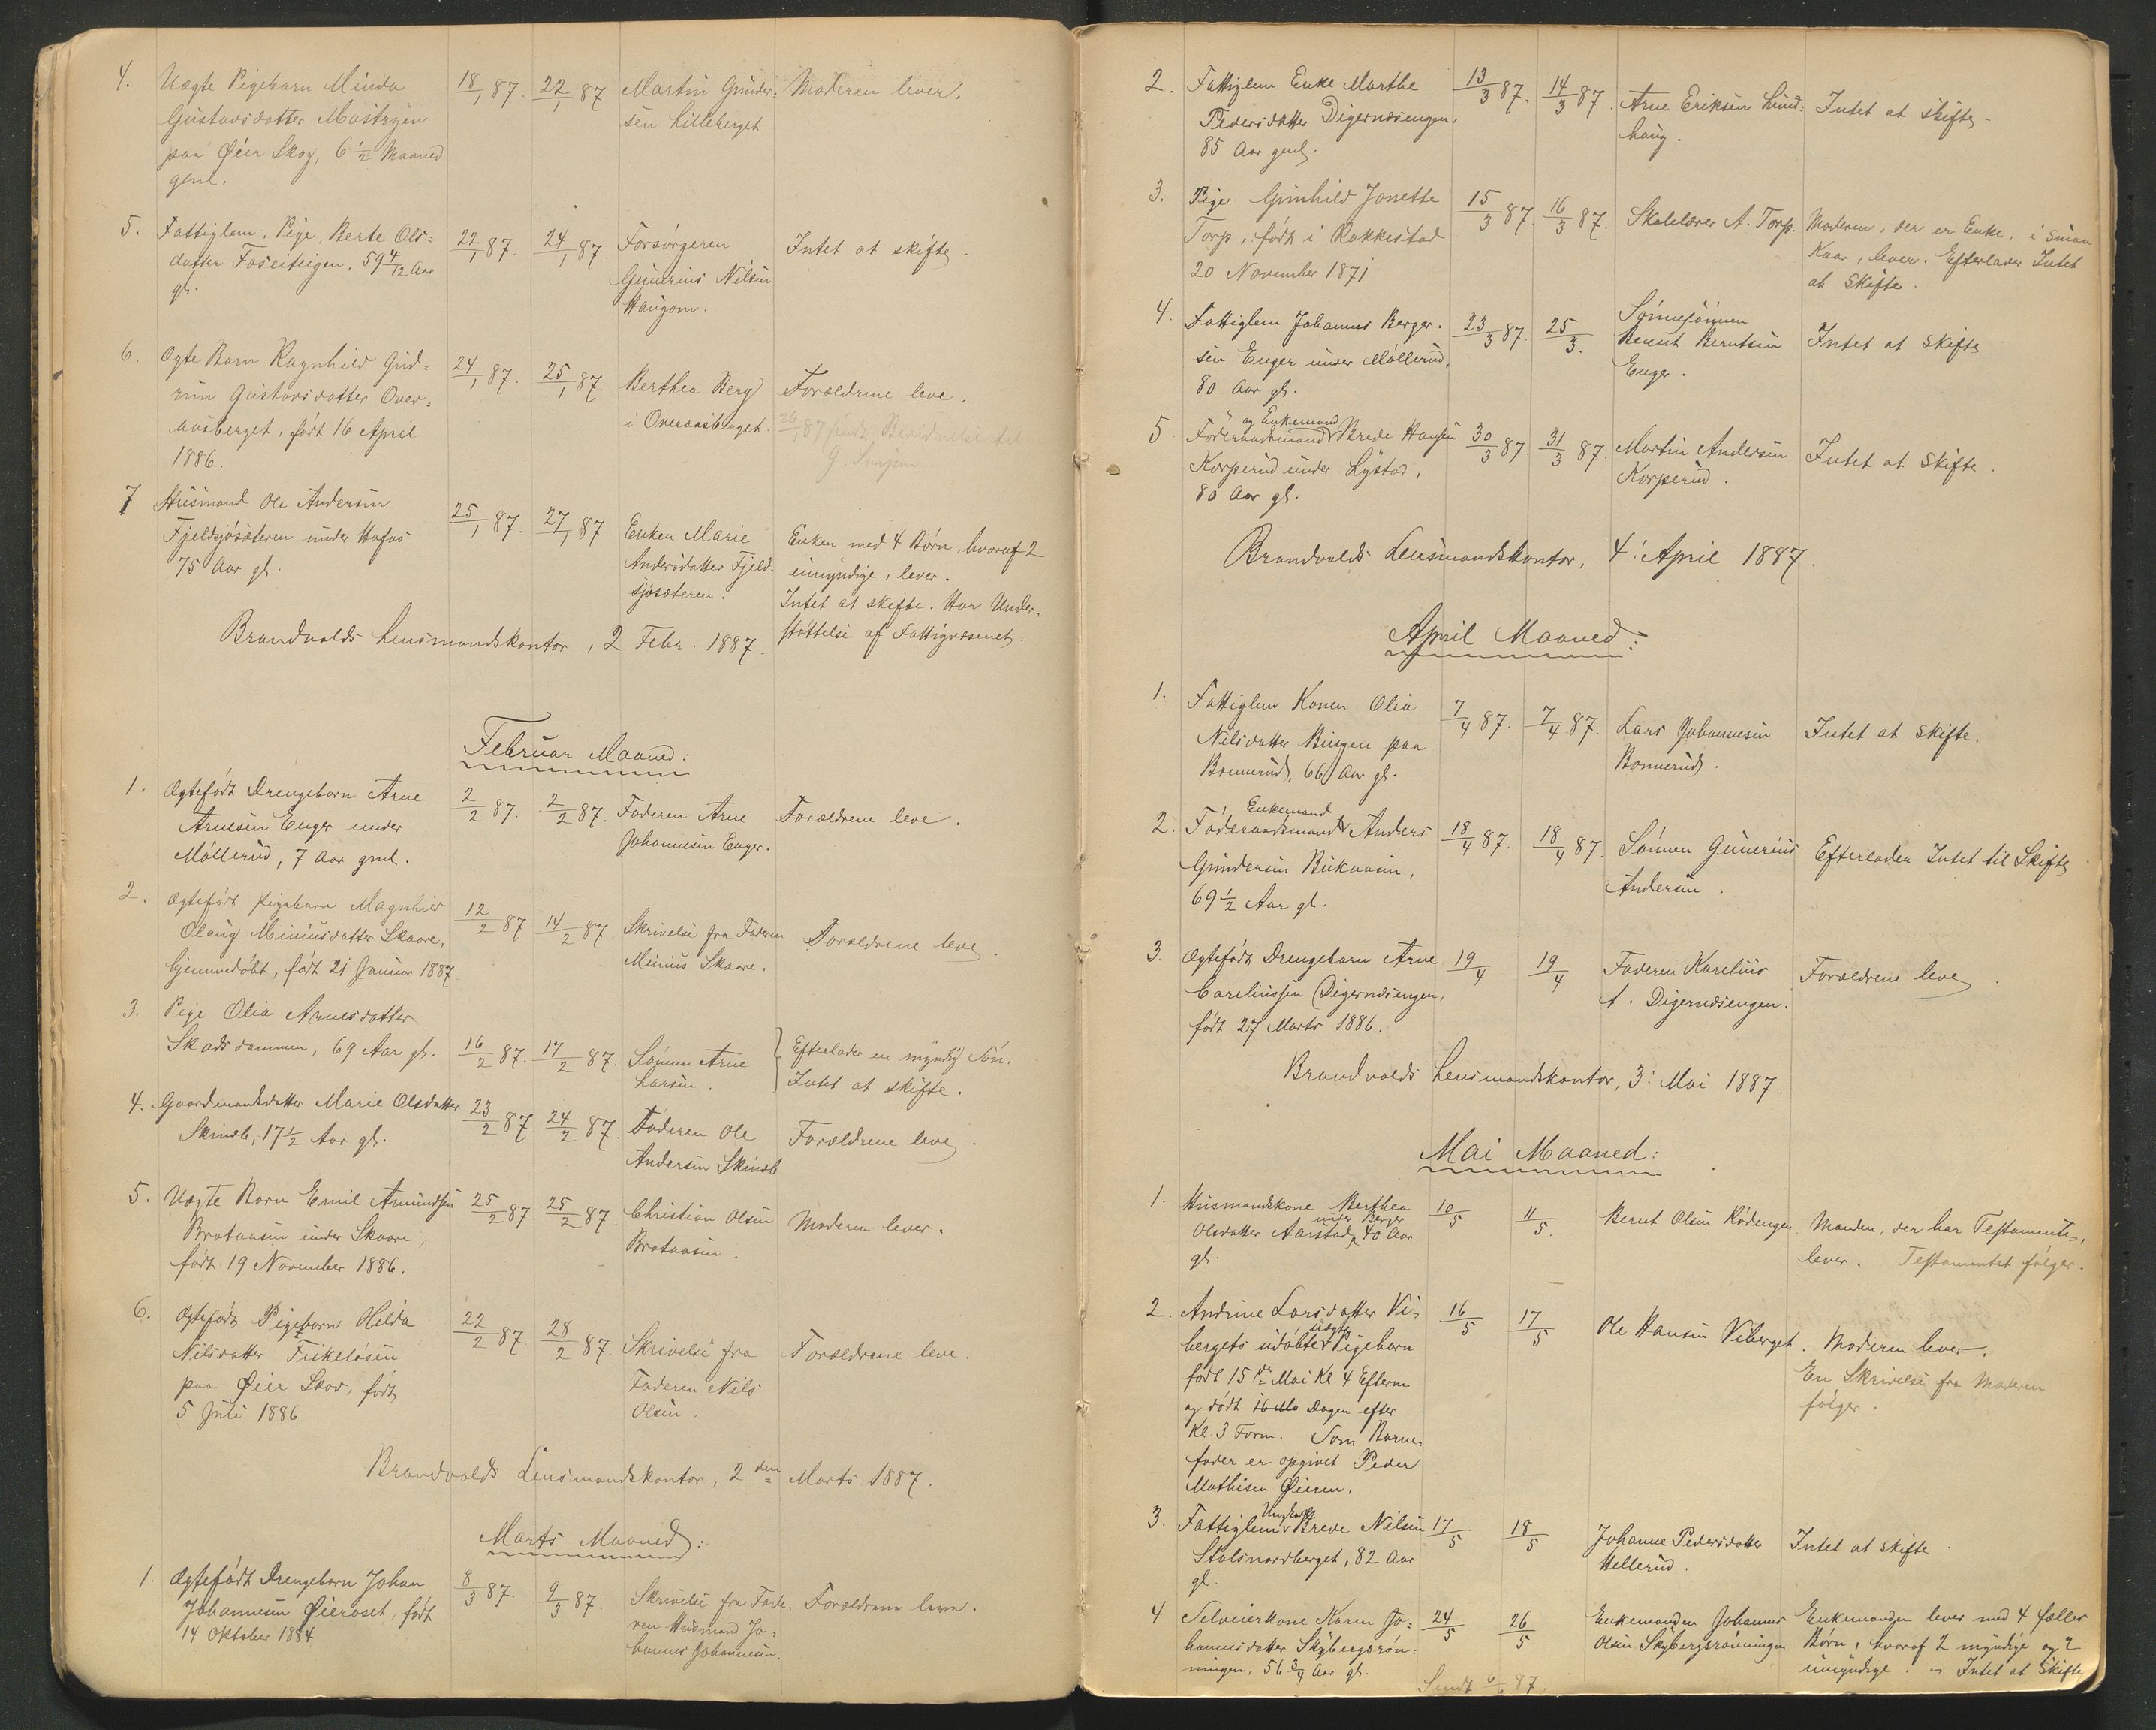 4. Uægte Pigebarn Minda
Gustavsdatter Mastryen
paa Øier Skog, 6 1/2 Maaned
gml.
18/1 87. 22/1 87
Martin Gunder-
sen Lilleberget
Moderen lever.
5. Fattiglem, Pige, Berte Ols=
datter Foseiteigen, 59 4/12 Aar
gl.
22/1 87. 24/1 87
Forsørgeren
Gunerius Nilsen
Haugom.
Intet at skifte.
6. Ægte Barn Ragnhild Gud=
run Gustavsdatter Over=
aasberget, født 16 April
1886.
24/1 87. 25/1 87.
Berthea Berg
i Overaasberget.
Forældrene leve.
26/1 87 sendt
7 Husmand Ole Andersen
Fjeldsjøsæteren under Hafos
75 Aar gl.
25/1 87. 27/1 87
Enken Marie
Andersdatter Fjeld-
sjøsæteren.
Enken med 4 Børn, hvoraf 2
umyndige, lever.
Intet at skifte. Har Under-
støttelse af Fattigvæsenet.
Brandvolds Lensmandskontor, 2 Febr. 1887.
Februar Maaned:
1. Ægtefødt Drengebarn Arne
Arnesen Enger under
Møllerud, 7 Aar gml.
2/2 87. 2/2 87.
Faderen Arne
Johannesen Enger.
Forældrene leve.
2. Ægtefødt Pigebarn Magnhild
Olaug Miniusdatter Skaare,
hjemmedøbt, født 21 Januar 1887
12/2 87 14/2 87
Skrivelse fra Faderen
Minius Skaare.
Forældrene leve.
3. Pige Olia Arnesdatter
Skadsdammen, 69 Aar gl.
16/2 87. 17/2 87.
Sønnen Arne
Larsen.
Efterlader en myndig Søn.
Intet at skifte.
4. Gaardmandsdatter Marie Olsdatter
Skinæb, 17 1/2 Aar gl.
23/2 87. 24/2 87.
Faderen Ole
Andersen Skinæb
Forældrene leve.
5. Uægte Barn Emil Amundsen
Brataasen under Skaare,
født 19 November 1886.
25/2 87. 25/2 87
Christian Olsen
Brataasen.
Moderen lever.
6. Ægtefødt Pigebarn Hilda
Nilsdatter Fiskeløsen
paa Øier Skov, født
5 Juli 1886
22/2 87. 28/2 87.
Skrivelse fra
Faderen Nils
Olsen.
Forældrene leve.
Brandvolds Lensmandskontor, 2den Marts 1887.
Marts Maaned:
1. Ægtefødt Drengebarn Johan
Johannesen Øieraset, født
14 Oktober 1884
8/3 87. 9/3 87.
Skrivelse fra Fade-
ren Husmand Jo-
hannes Johannesen.
Forældrene leve.
2. Fattiglem Enke Marthe
Pedersdatter Digernæsengen,
85 Aar gml.
13/3 87. 14/3 87.
Arne Eriksen Lund=
haug.
Intet at skifte.
3. Pige Gunhild Jonette
Torp, født i Rakkestad
20 November 1871
15/3 87. 16/3 87.
Skolelærer A. Torp.
Moderen, der er Enke, i smaa
Kaar, lever. Efterlader Intet
at Skifte.
4. Fattiglem Johannes Berger-
sen Enger under Møllerud,
80 Aar gl.
23/3 87. 25/3.
Sønnesønnen
Bernt Berntsen
Enger.
Intet at skifte
5 Føderaadsmand og Enkemand Brede Hansen
Korperud under Lystad,
80 Aar gl.
30/3 87. 31/3 87.
Martin Andersen
Korperud.
Intet at skifte.
Brandvolds Lensmandskontor, 4. April 1887.
April Maaned:
1. Fattiglem Konen Olia
Nilsdatter Bingen paa
Bonnerud, 66 Aar gl.
7/4 87. 7/4 87.
Lars Johannesen
Bonnerud.
Intet at skifte.
2. Føderaadsmand Enkemand Anders
Gundersen Bukaasen,
69 1/2 Aar gl.
18/4 87. 18/4 87.
Sønnen Gunerius
Andersen.
Efterlader Intet til Skifte.
3. Ægtefødt Drengebarn Arne
Careliussen Digernæsengen,
født 27 Marts 1886.
19/4 19/4
Faderen Karelius
A. Digernæsengen.
Forældrene leve.
Brandvolds Lensmandskontor, 3. Mai 1887.
Mai Maaned:
1. Husmandskone Berthea
Olsdatter Aarstad under Berger 40 Aar
gl.
10/5 11/5.
Bernt Olsen Rødengen
Manden, der har Testamente,
lever. Testamentet følger.
2. Andrine Larsdatter Vi-
bergets udøbte uægte Pigebarn
født 15de Mai Kl. 4 Efterm
og dødt Dagen efter
Kl. 3 Form. Som Barne-
fader er opgivet Peder
Mathisen Øieren.
16/5 17/5
Ole Hansen Viberget.
Moderen lever.
En Skrivelse fra Moderen
følger.
3. Fattiglem Ungkarl Brede Nilsen
Stolsnordberget, 82 Aar
gl.
17/5 18/5
Johanne Pedersdatter
Hellerud.
Intet at skifte.
4. Selveierkone Karen Jo=
hannesdatter Skybergsrøn=
ningen, 56 3/4 Aar gl.
24/5 26/5
Enkemanden Johannes
Olsen Skybergsrønningen
Enkemanden lever med 4 fælles
Børn, hvoraf 2 myndige og 2
umyndige. - Intet at Skifte
Sendt 6/6 87.